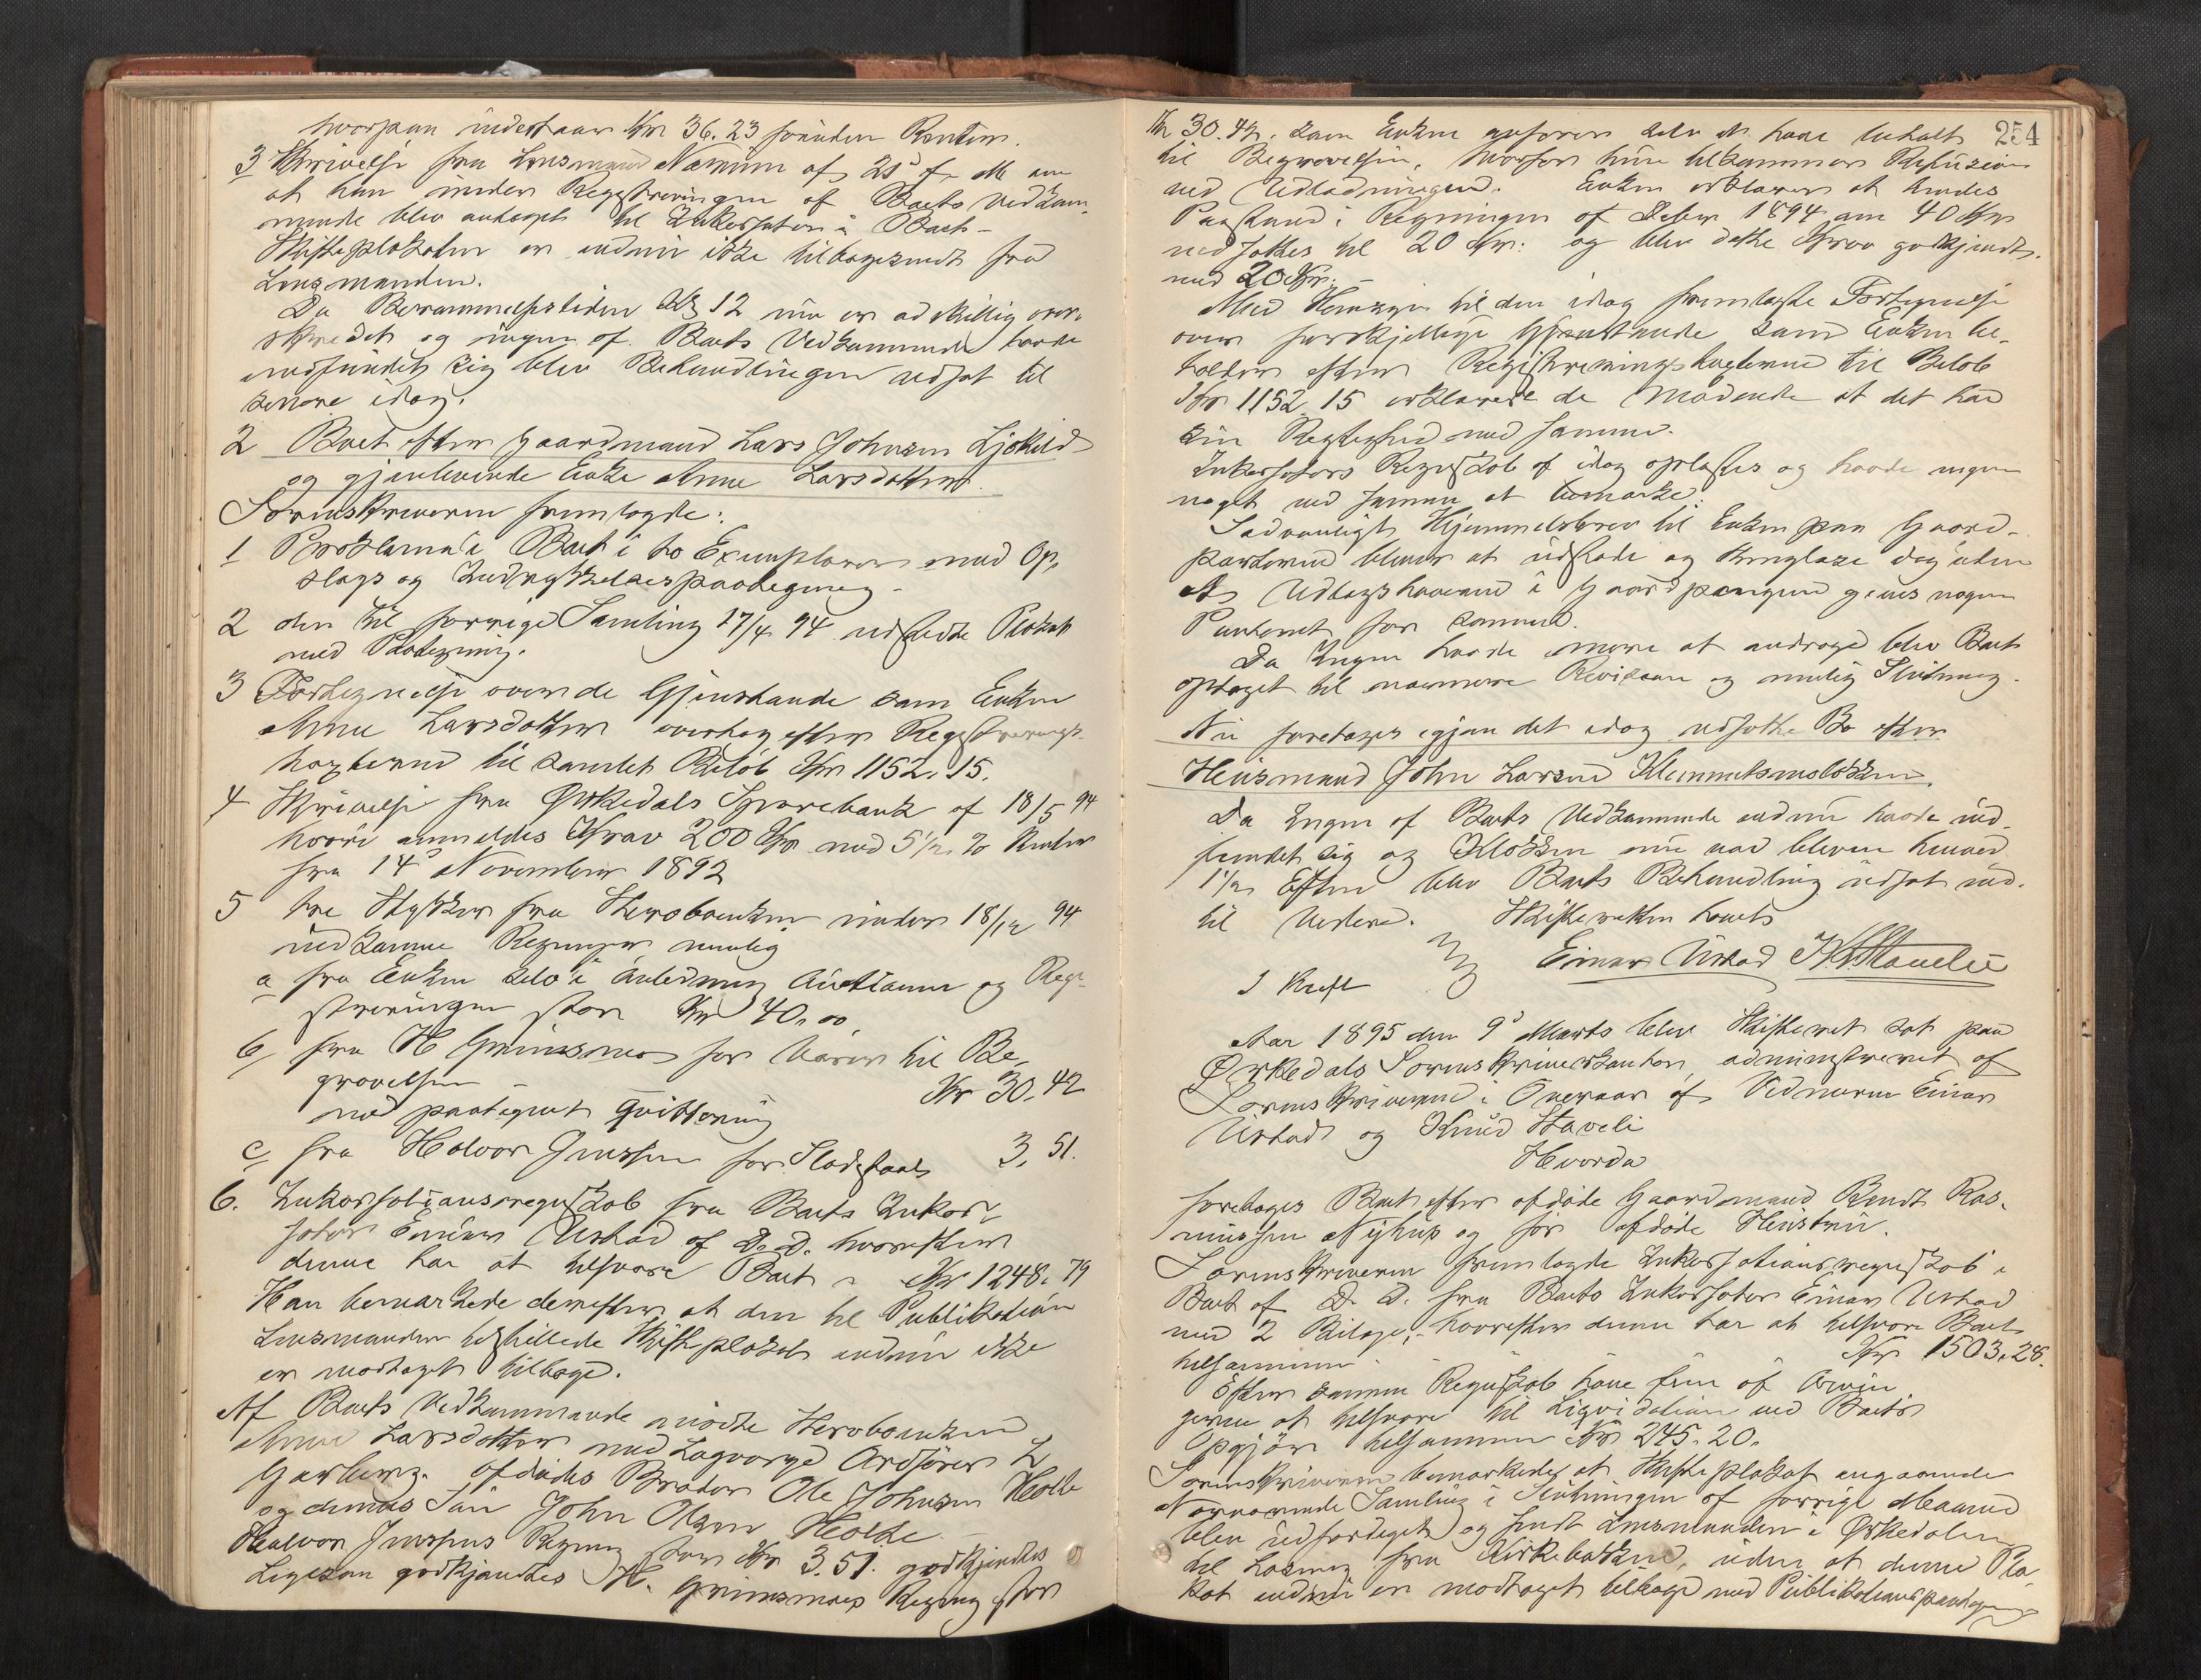 hvorpaa indestaar Kr 36.23 foruden Renter.
3 Skrivelse fra Lensmand Narum af 25 f. M om
at han under Registreringen af Boets Vedkom-
mende blev antaget til Inkassator i Boet –
Skifteplakaten er endnu ikke tilbagesendt fra
Lensmanden.
Da Berammelsestiden Kl 12 nu er adskillig over-
skredet og ingen af Boets Vedkommende havde
indfundet sig blev Behandlingen udsat til
senere idag.
2 Boet efter Gaardmand Lars Johnsen Ljøkild
og gjenlevende Enke Anne Larsdatter.
Sorenskriveren fremlagde:
1 Proklama i Boet i to Exemplarer med Op-
slags og Indrykkelsespaategning –
2 den til forrige Samling 17/4 94 udstedte Plakat
med Paategning.
3 Fortegnelse over de Gjenstande som Enken
Anne Larsdatter overtog efter Registrerings-
taxterne til samlet Beløb Kr 1152.15.
4 Skrivelse fra Ørkedals Sparebank af 18/5 94
hvori anmeldes Krav 200 Kr med 5 1/2 % Renter
fra 14 November 1892
5 tre Stykker fra Stervboenken under 18/12 94
indkomne Regninger nemlig
a fra Enken selv i Anledning Auctionen og Regi-
streringen stor Kr 40.00
b fra H Grimsmo for Varer til Be-
gravelsen – Kr 30.42
med paategnet Qvittering
c fra Halvor Jenssen for Sladestaal 3.51.
6. Inkassationsregnskab fra Boets Inkas-
sator Einar Urstad af D. D. hvorefter
denne har at tilsvare Boet Kr 1248.79
Han bemærkede derefter at den til Publikation
Lensmanden tilstillede Skifteplakat endnu ikke
er modtaget tilbage.
Af Boets Vedkommende mødte Stervboenken
Anne Larsdatter med Lagværge Ordfører L
Garberg. Afdødes Broder Ole Johnsen Holte
og dennes Søn John Olsen Holte.
Halvor Jenssens Regning stor Kr 3.51. godkjendtes
Ligesom godkjendtes H. Grimsmoes Regning stor
254
Kr 30.42. som Enken anfører selv at have betalt
til Begravelsen, hvorfor hun tilkommer Refusion
ved Udlodningen. Enken erklærer at hendes
Paastand i Regningen af Debr 1894 om 40 Kr
nedsættes til 20 Kr: og blev dette Krav godkjendt
med 20 Kr. –
Med Hensyn til den idag fremlagte Fortegnelse
over forskjellige Gjenstande som Enken be-
holder efter Registreringstaxterne til Beløb
Kr 1152.15 erklærede de Mødende at det har
sin Rigtighed med samme.
Inkassators Regnskab af idag oplæstes og havde ingen
noget ved samme at bemærke.
Sædvanligt Hjemmelsbrev til Enken paa Gaard-
parterne bliver at udstede og thinglæse dog uden
at Udlægshaverne i Gaardpengene gives nogen
Panteret for samme.
Da Ingen havde mere at andrage blev Boet
optaget til nærmere Revision og mulig Slutning.
Nu foretages igjen det idag udsatte Bo efter
Husmand John Larsen Klemmetsmoløkken
Da Ingen af Boets Vedkommende endnu havde ind-
fundet sig og Klokken nu var bleven henved
1 1/2 Efter blev Boets Behandling udsat ind-
til videre. Skifteretten hævet
Einar Urstad K Staveli
I Kraft
Aar 1895 den 9 Marts blev Skifteret sat paa
Ørkedals Sorenskriverkontor, administreret af
Sorenskriveren i Overvær af Vidnerne Einar
Urstad og Knud Staveli
Hvorda
foretages Boet efter afdøde Gaardmand Bendt Ras-
mussen Nyhus og før afdøde Hustru.
Sorenskriveren fremlagde Inkassationsregnskab i
Boet af D. D. fra Boets Inkassator Einar Urstad
med 2 Bilage, hvorefter denne har at tilsvare Boet
tilsammen Kr 1503.28.
Efter samme Regnskab have fire af Arvin-
gerne at tilsvare til Liqvidation ved Boets
Opgjør tilsammen Kr 245.20.
Sorenskriveren bemærkede, at Skifteplakat angaaende
Nærværende Samling i Slutningen af forrige Maaned
blev udfærdiget og sendt Lensmanden i Ørkedalen
til Læsning fra Kirkebakken, uden at denne Pla-
kat endnu er modtaget tilbage med Publikationspaategning